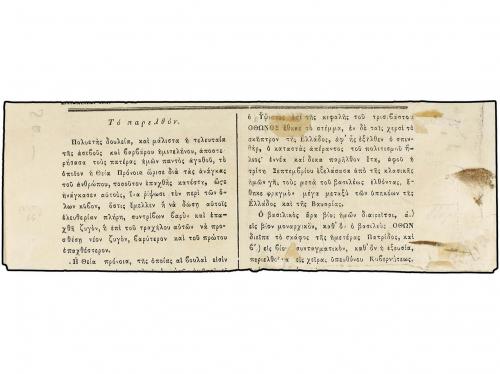 Τὸ παρελθόν.
Πολυετὴς δουλεία, καὶ μάλιστα ἡ τελευταία
τῆς ἀσεβοῦς καὶ βαρβάρου ἡμισελήνου, ἀποστε-
ρήσασα τοὺς πατέρας ἡμῶν παντὸς ἀγαθοῦ, τὸ
ὁποῖον ἡ Θεία Πρόνοια ὥρισε διὰ τὰς ἀνάγκας
τοῦ ἀνθρώπου, τοσοῦτον ἐπαχθὴς κατέστη, ὥςε
ἠνάγκασεν αὐτοὺς, ἵνα ῥίψωσι τὸν περὶ τῶν ὅ-
λων κύβον, ὅστις ἔμελλεν ἢ νὰ δώσῃ αὐτοῖς
ἐλευθερίαν πλήρη, συντρίβων βαρὺν καὶ ἐπα-
χθῆ ζυγὸν, ἢ ἐπὶ τοῦ τραχήλου αὐτῶν νὰ προ-
σθέσῃ νέον ζυγὸν, βαρύτερον καὶ τοῦ πρώτου
ἐπαχθέστερον.
Ἡ Θεία πρόνοια, τῆς ὁποίας αἱ βουλαὶ εἰσὶν
ὁ Ὕψιστος ἐπὶ τῆς κεφαλῆς τοῦ τρισεβάστου
ΟΘΩΝΟΣ ἔθηκε τὸ στέμμα, ἐν δὲ ταῖς χερσὶ τὸ
σκῆπτρον τῆς Ἑλλάδος, ἀφ' ἧς ἐξῆλθεν ὁ σπιν-
θὴρ, ὁ καταστὰς ἀπέραντος τοῦ πολιτισμοῦ ἥ-
λιος· ἐννέα καὶ δεκα παρῆλθον ἔτη, ἀφοῦ ἡ
τρίτη Σεπτεμβρίου ἐξελάσασα ἀπὸ τῆς κλασικῆς
ἡμῶν γῆς τοὺς μετὰ τοῦ βασιλέως ἐλθόντας, ἔ-
θηκε φραγμὸν μέγα μεταξὺ τῶν ὑπηκόων τῆς
Ἑλλάδος καὶ τῆς Βαυαρίας.
Ὁ βασιλικὸς ἄρα βίος ἡμῶν διαιρεῖται, ά.)
εἰς βίον μοναρχικὸν, καθ' ὃν ὁ βασιλεὺς ΟΘΩΝ
διεῖπε τὸ σκάφος τῆς ἡμετέρας Πατρίδος, καὶ
β'.) εἰς βίον συνταγματικὸν, καθ' ὃν ἡ ἐξουσία,
περιελθοῦσα εἰς χεῖρας ὑπευθύνου Κυβερνήσεως,